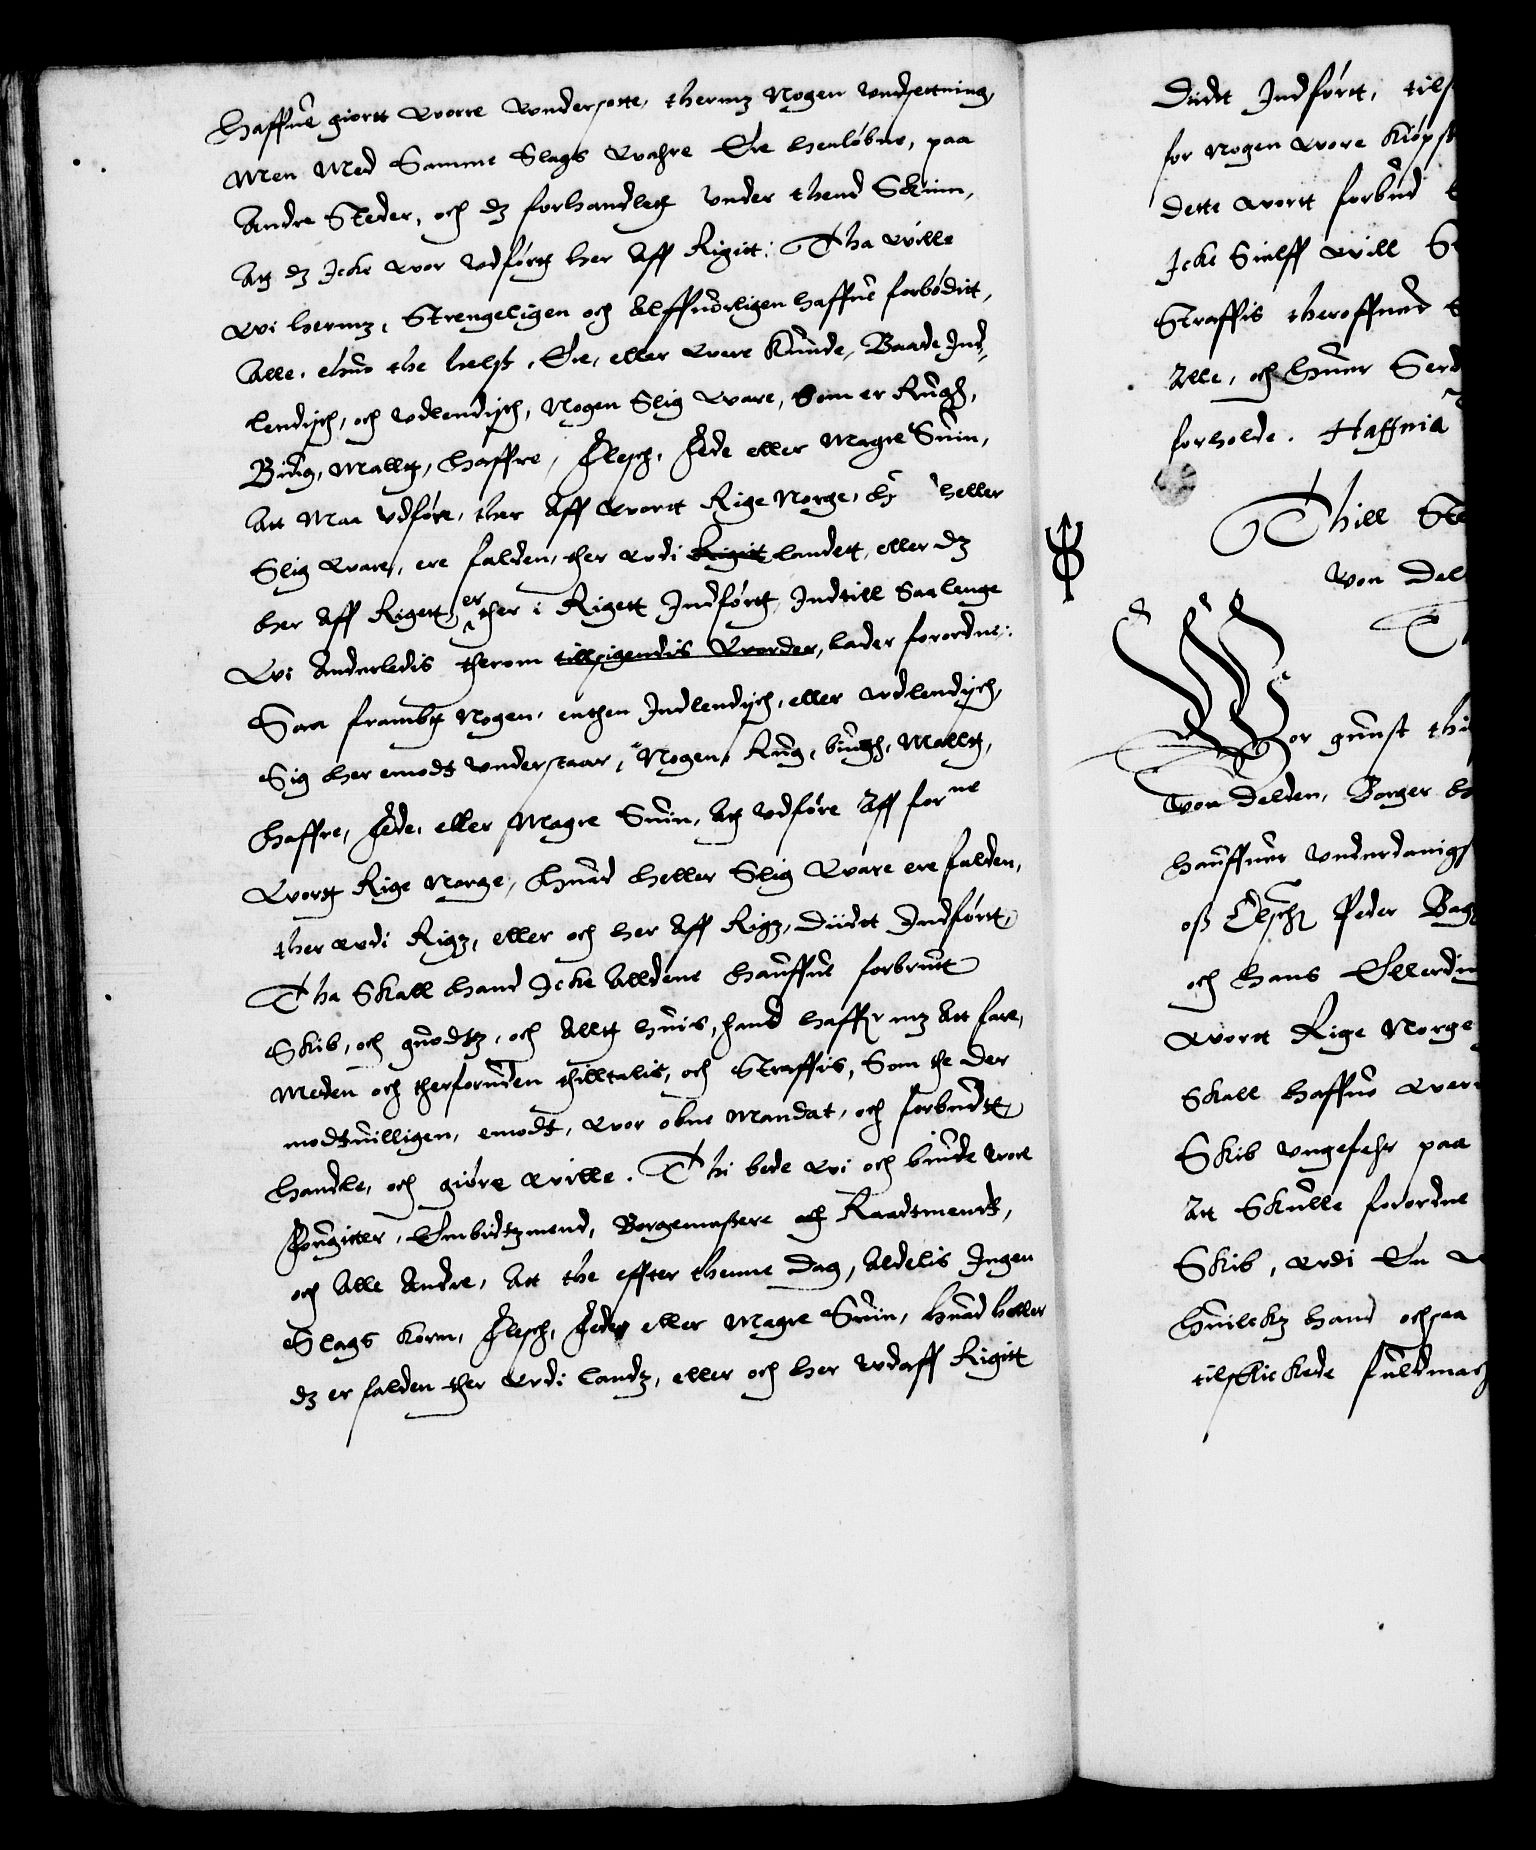 Haffue giortt Worre Wndersotte, thermz Nogen Wndsettning,
Men Med Samme Slags Wahre Ere henløbne, paa
Andre Steder, och dz forhandlett Vnder thend Skinn,
Att dz Icke Wor Vdførtt her Aff Rigitt: Tha Wille
Wi hermz, Strengeligen och Alffuorligen haffue forbøditt,
Alle, ehuo the helst, Ere, eller Were Kunde, Baade Ind-
lendisch, och Vdlendisch, Nogen Slig Ware, Som er Rugh,
Biug, Malltt, haffre, Flesch, Fede eller Magre Suin,
Att Maa Vdføre, ther Aff Wortt Rige Norge, heller
Slig Ware, ere falden, ther Wdi Rigitt landett, eller dz
her Aff Rigett, er ther i Rigett Indførtt, Indtill Saa lenge
Wi Anderledis therom tillsigendis Worder, lader forordne:
Saa frambtt Nogen, enthen Indlendisch, eller Wdlendisch,
Sig her emodt Vnderstaar, Nogen Rug, biugh, Malltt,
Haffre, Fede, eller Magre Suin, Att Vdføre Aff forne
Wortt Rige Norge, Huad heller Slig Ware ere falden,
ther Wdi Rigz, eller och her Aff Rigz, Diidt Indførtt,
Tha Skall hand Icke Alldene hauffue forbrutt
Skib, och guodtz, och Alltt huis, hand haffr mz Att fare,
Meden och therforuden thilltalis, och Straffis, Som the der
modtuilligen, emodt, Wor obne Mandat, och forbudtt
handle, och giøre Wille. Thi bede Wi och biude Wore
Fougitter, Embidtzmend, Borgemestere och Raadtmend,
och Alle Andre, Att the effter thenne Dag, Aldelis Ingen
Slags Korn, Flesch, Fede eller Magre Suin, huad heller
dz er falden ther Wdi Landz, eller och her Wdaff Rigitt
Diidt Indførtt,
for Nogen Wore Kiøpst
dette Wortt forbud
Icke Sielff Will
Straffis theroffuer
Alle, och huer
forholde. Haffniæ
Thill
Von Del
Wor gunst
Von Delden, Borger
hauffuer Vnderdanigst
oss Elsche Peder Bag
och hans
Wortt Rige Norge
Skall haffue Wer
Skib Vngefehr paa
Att Skulle forordne
Skib, Wdi En
huilckz hand ochsaa
tilschickede fuldmac